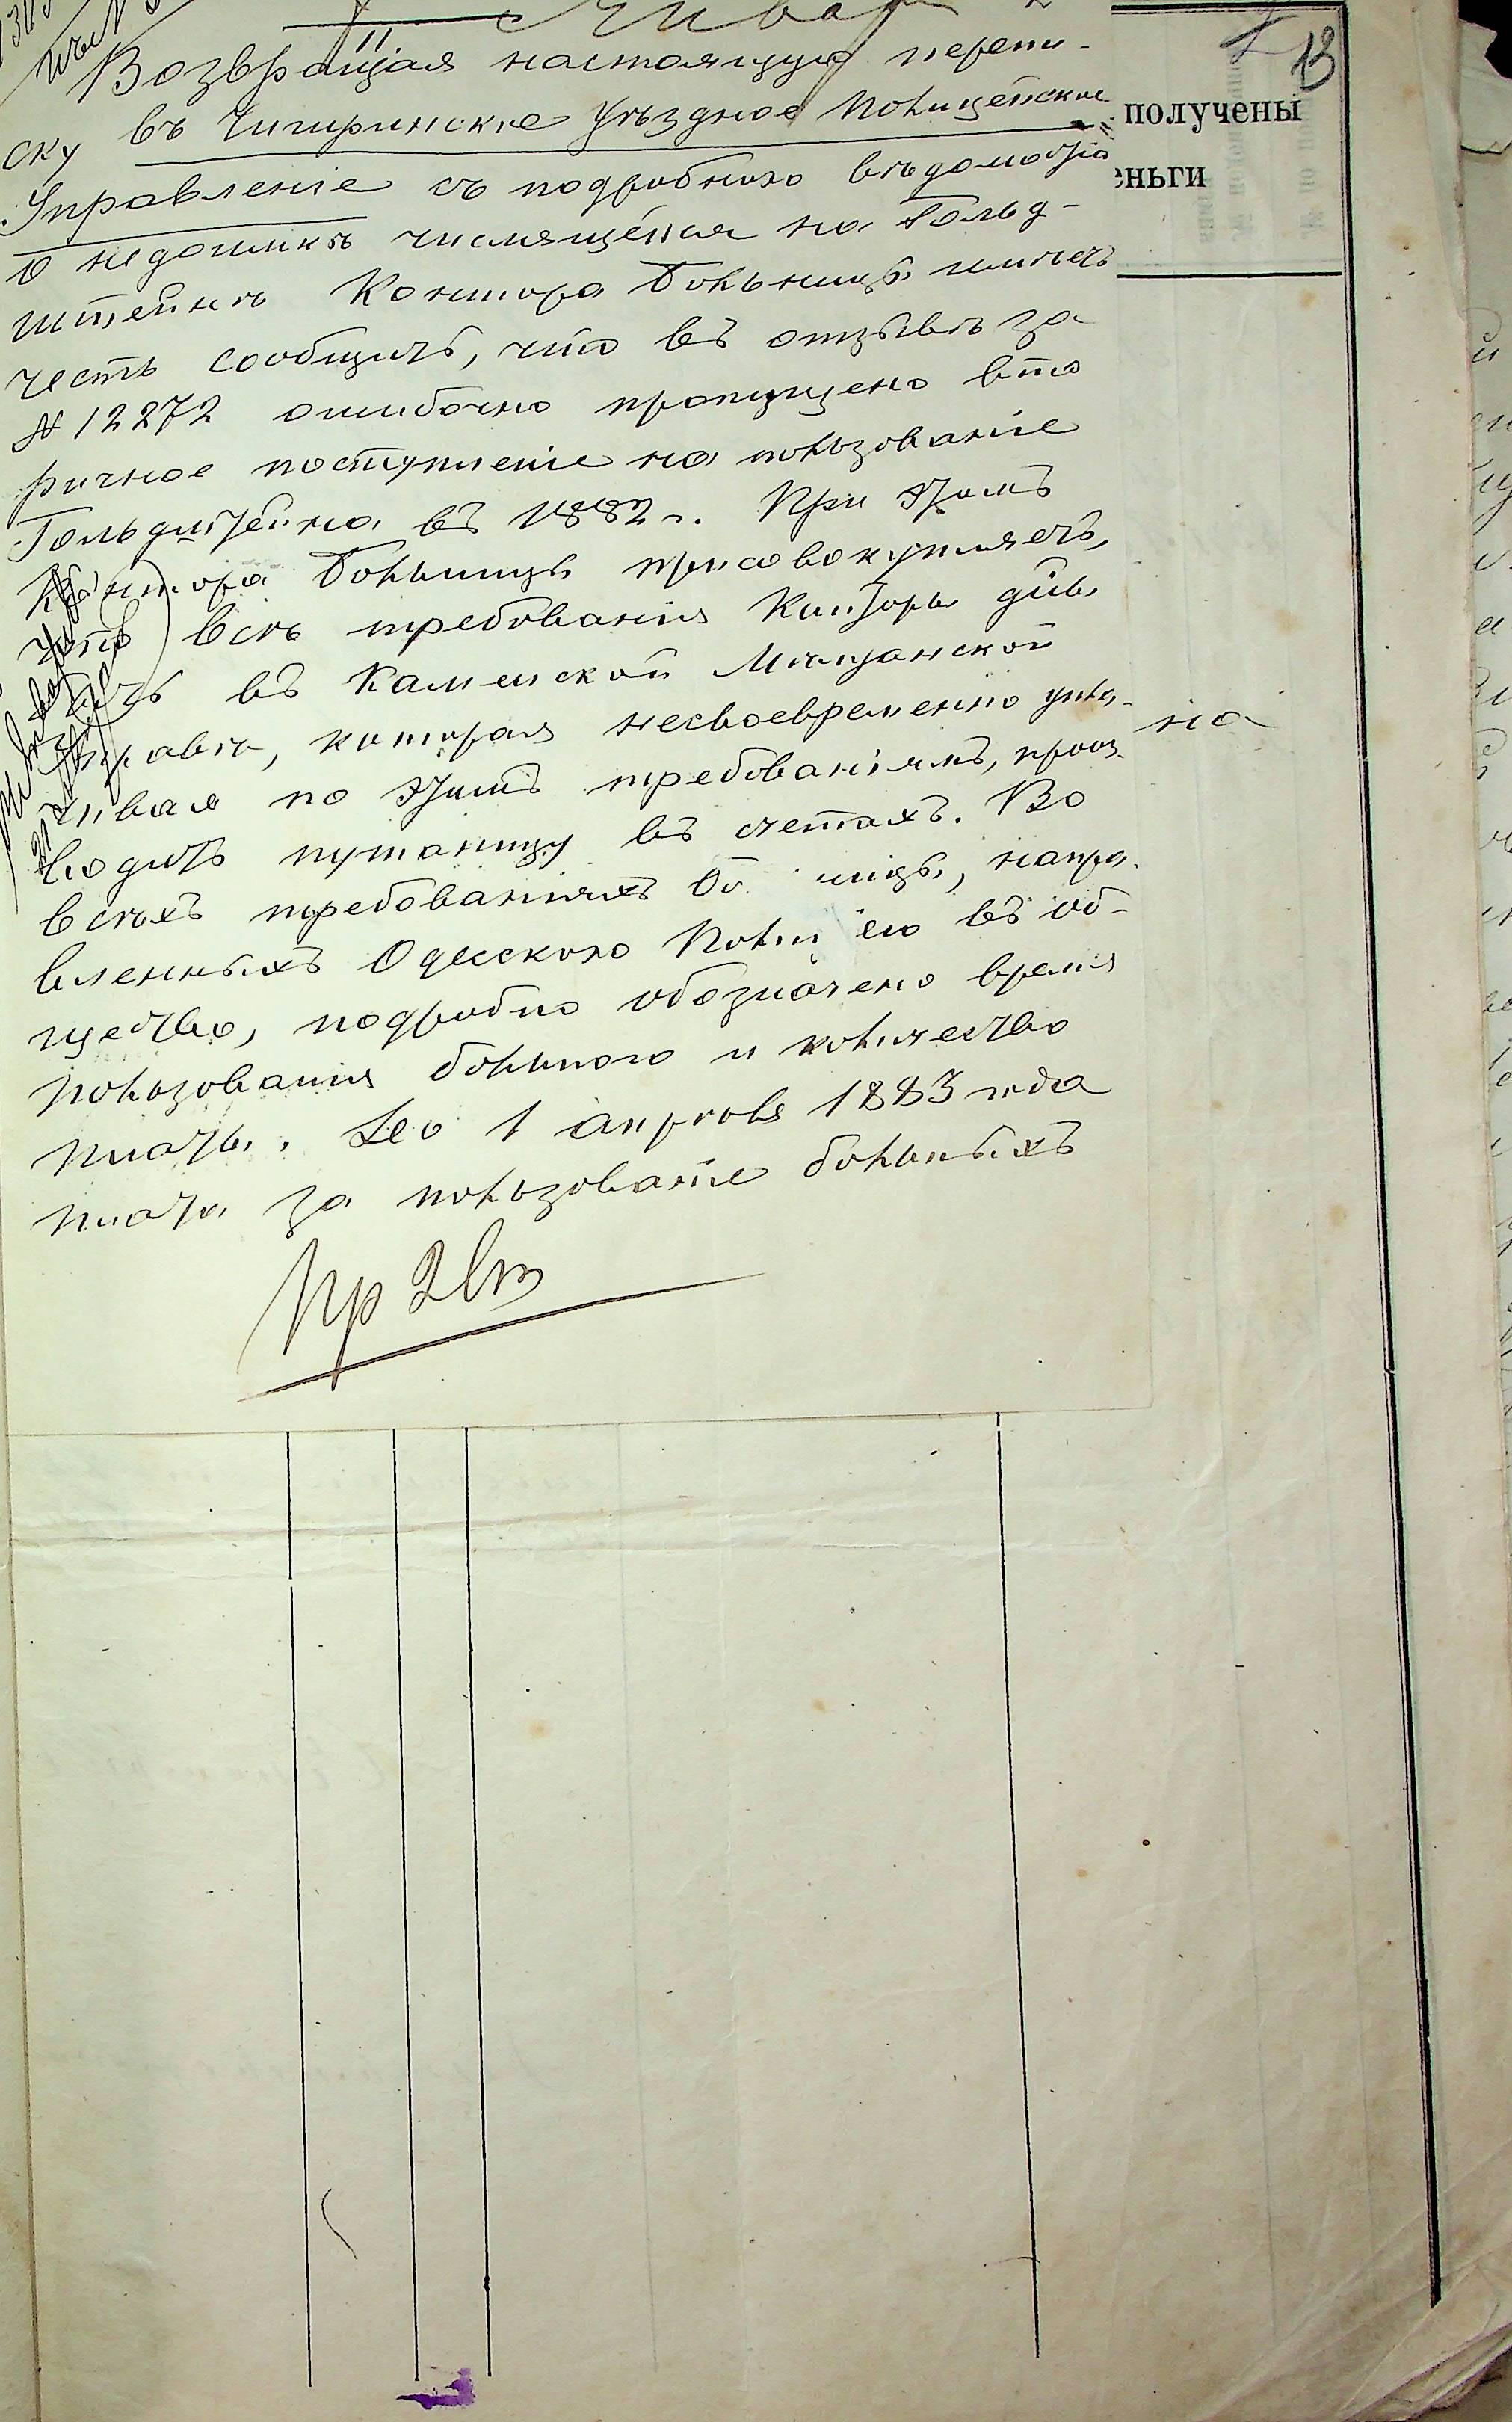 13
получены
еньги
Январ
Возвращая настоящую перепи-
ску въ Чигиринское Уѣздное Полицейское
Управленіе съ подробною вѣдомостію
о недоимкѣ числящейся на Гольд-
штейнѣ Контора Больницы имѣетъ
честь сообщить, что въ отзывѣ за
№ 12272 ошибочно пропущено вто
ричное поступленіе на пользованіе
Гольдштейна въ 1882 г. При этомъ
Контора Больницы присовокупляетъ,
что всѣ требованія Конторы
въ Каменской Мѣщанской
Управѣ, которая несвоевременно упла-
чивая по этимъ требованіямъ, произ-
водитъ путаницу въ счетахъ. Во
всѣхъ требованіяхъ Бо ницы, напра-
вленныхъ Одесскою Поли ею въ об-
щество, подробно обозначено время
пользованія больного и количество
платы. До 1 апрѣля 1883 года
плата за пользованіе больныхъ
на